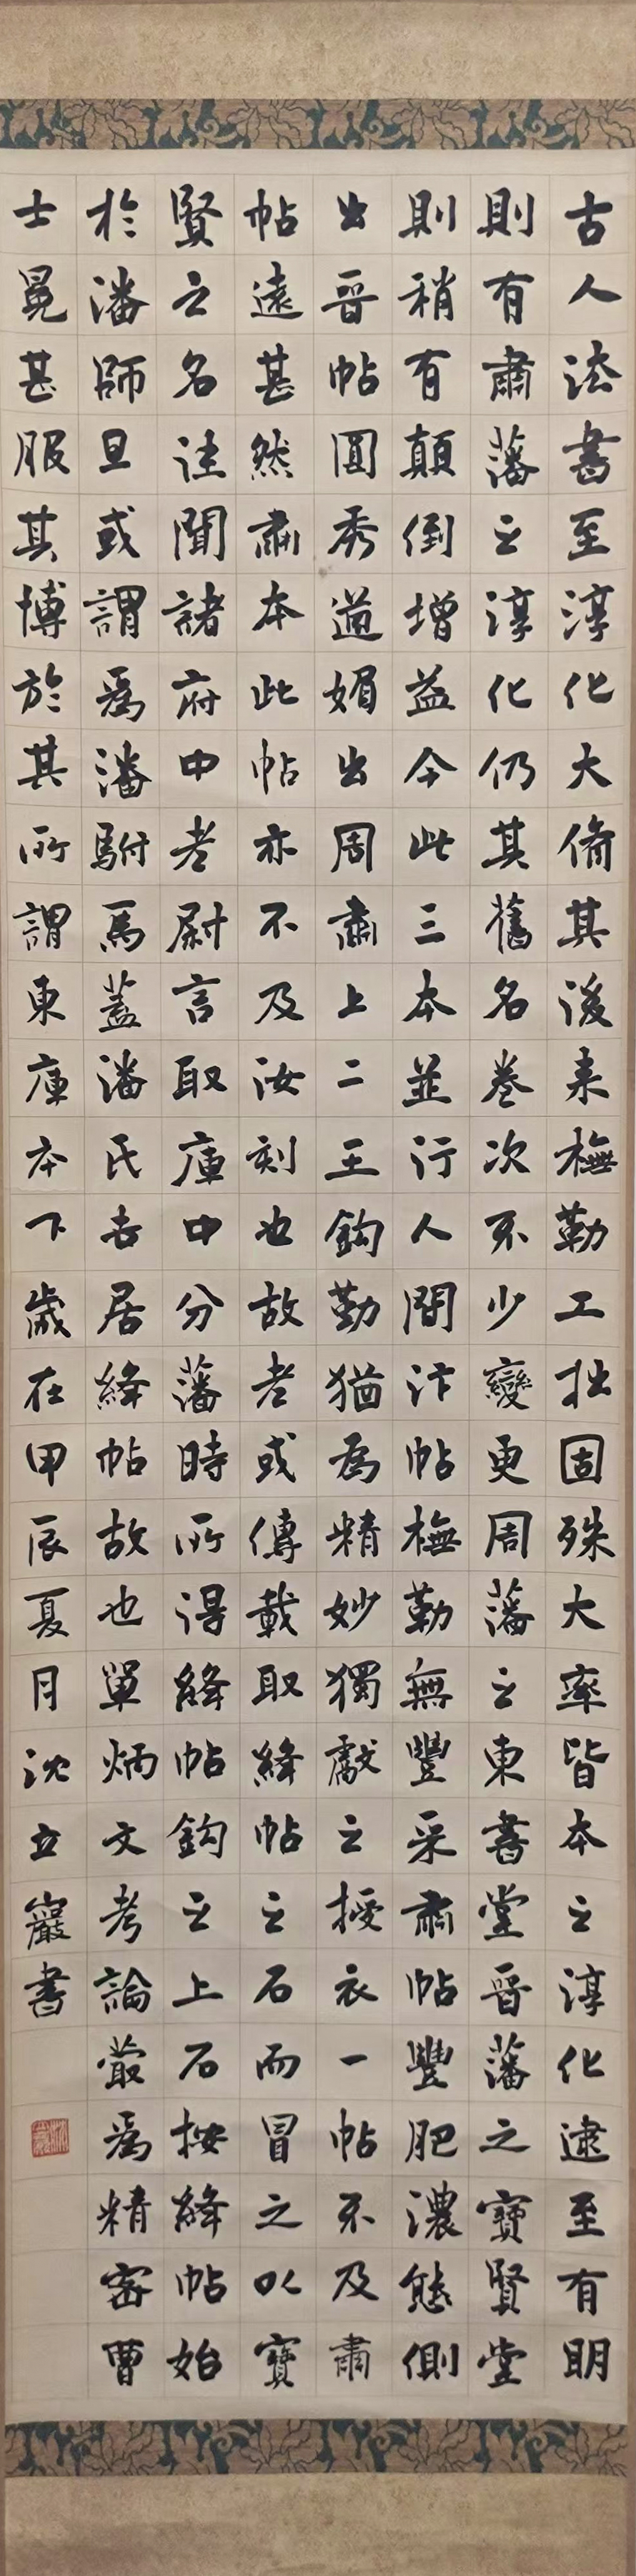 古人法書至淳化大備其後来橅勒工拙固殊大率皆本之淳化逮至有明
則有肅藩之淳化仍其舊名卷次不少變更周藩之東書堂晉藩之寶賢堂
則稍有顛倒增益今此三本並行人間汴帖橅勒無豐采肅帖豐肥濃態側
出晉帖圓秀遒媚出周肅上二王鈎勒猶為精妙獨獻之授衣一帖不及肅
帖遠甚然肅本此帖亦不及汝刻也故老或傳載取絳帖之石而冒之以寶
賢之名注聞諸府中老尉言取庫中分藩時所得絳帖鈎之上石按絳帖始
於潘師旦或謂爲潘駙馬蓋潘氏世居絳帖故也單炳文考論㝡爲精密曹
士冕甚服其博於其所謂東庫本下歲在甲辰夏月沈立巖書